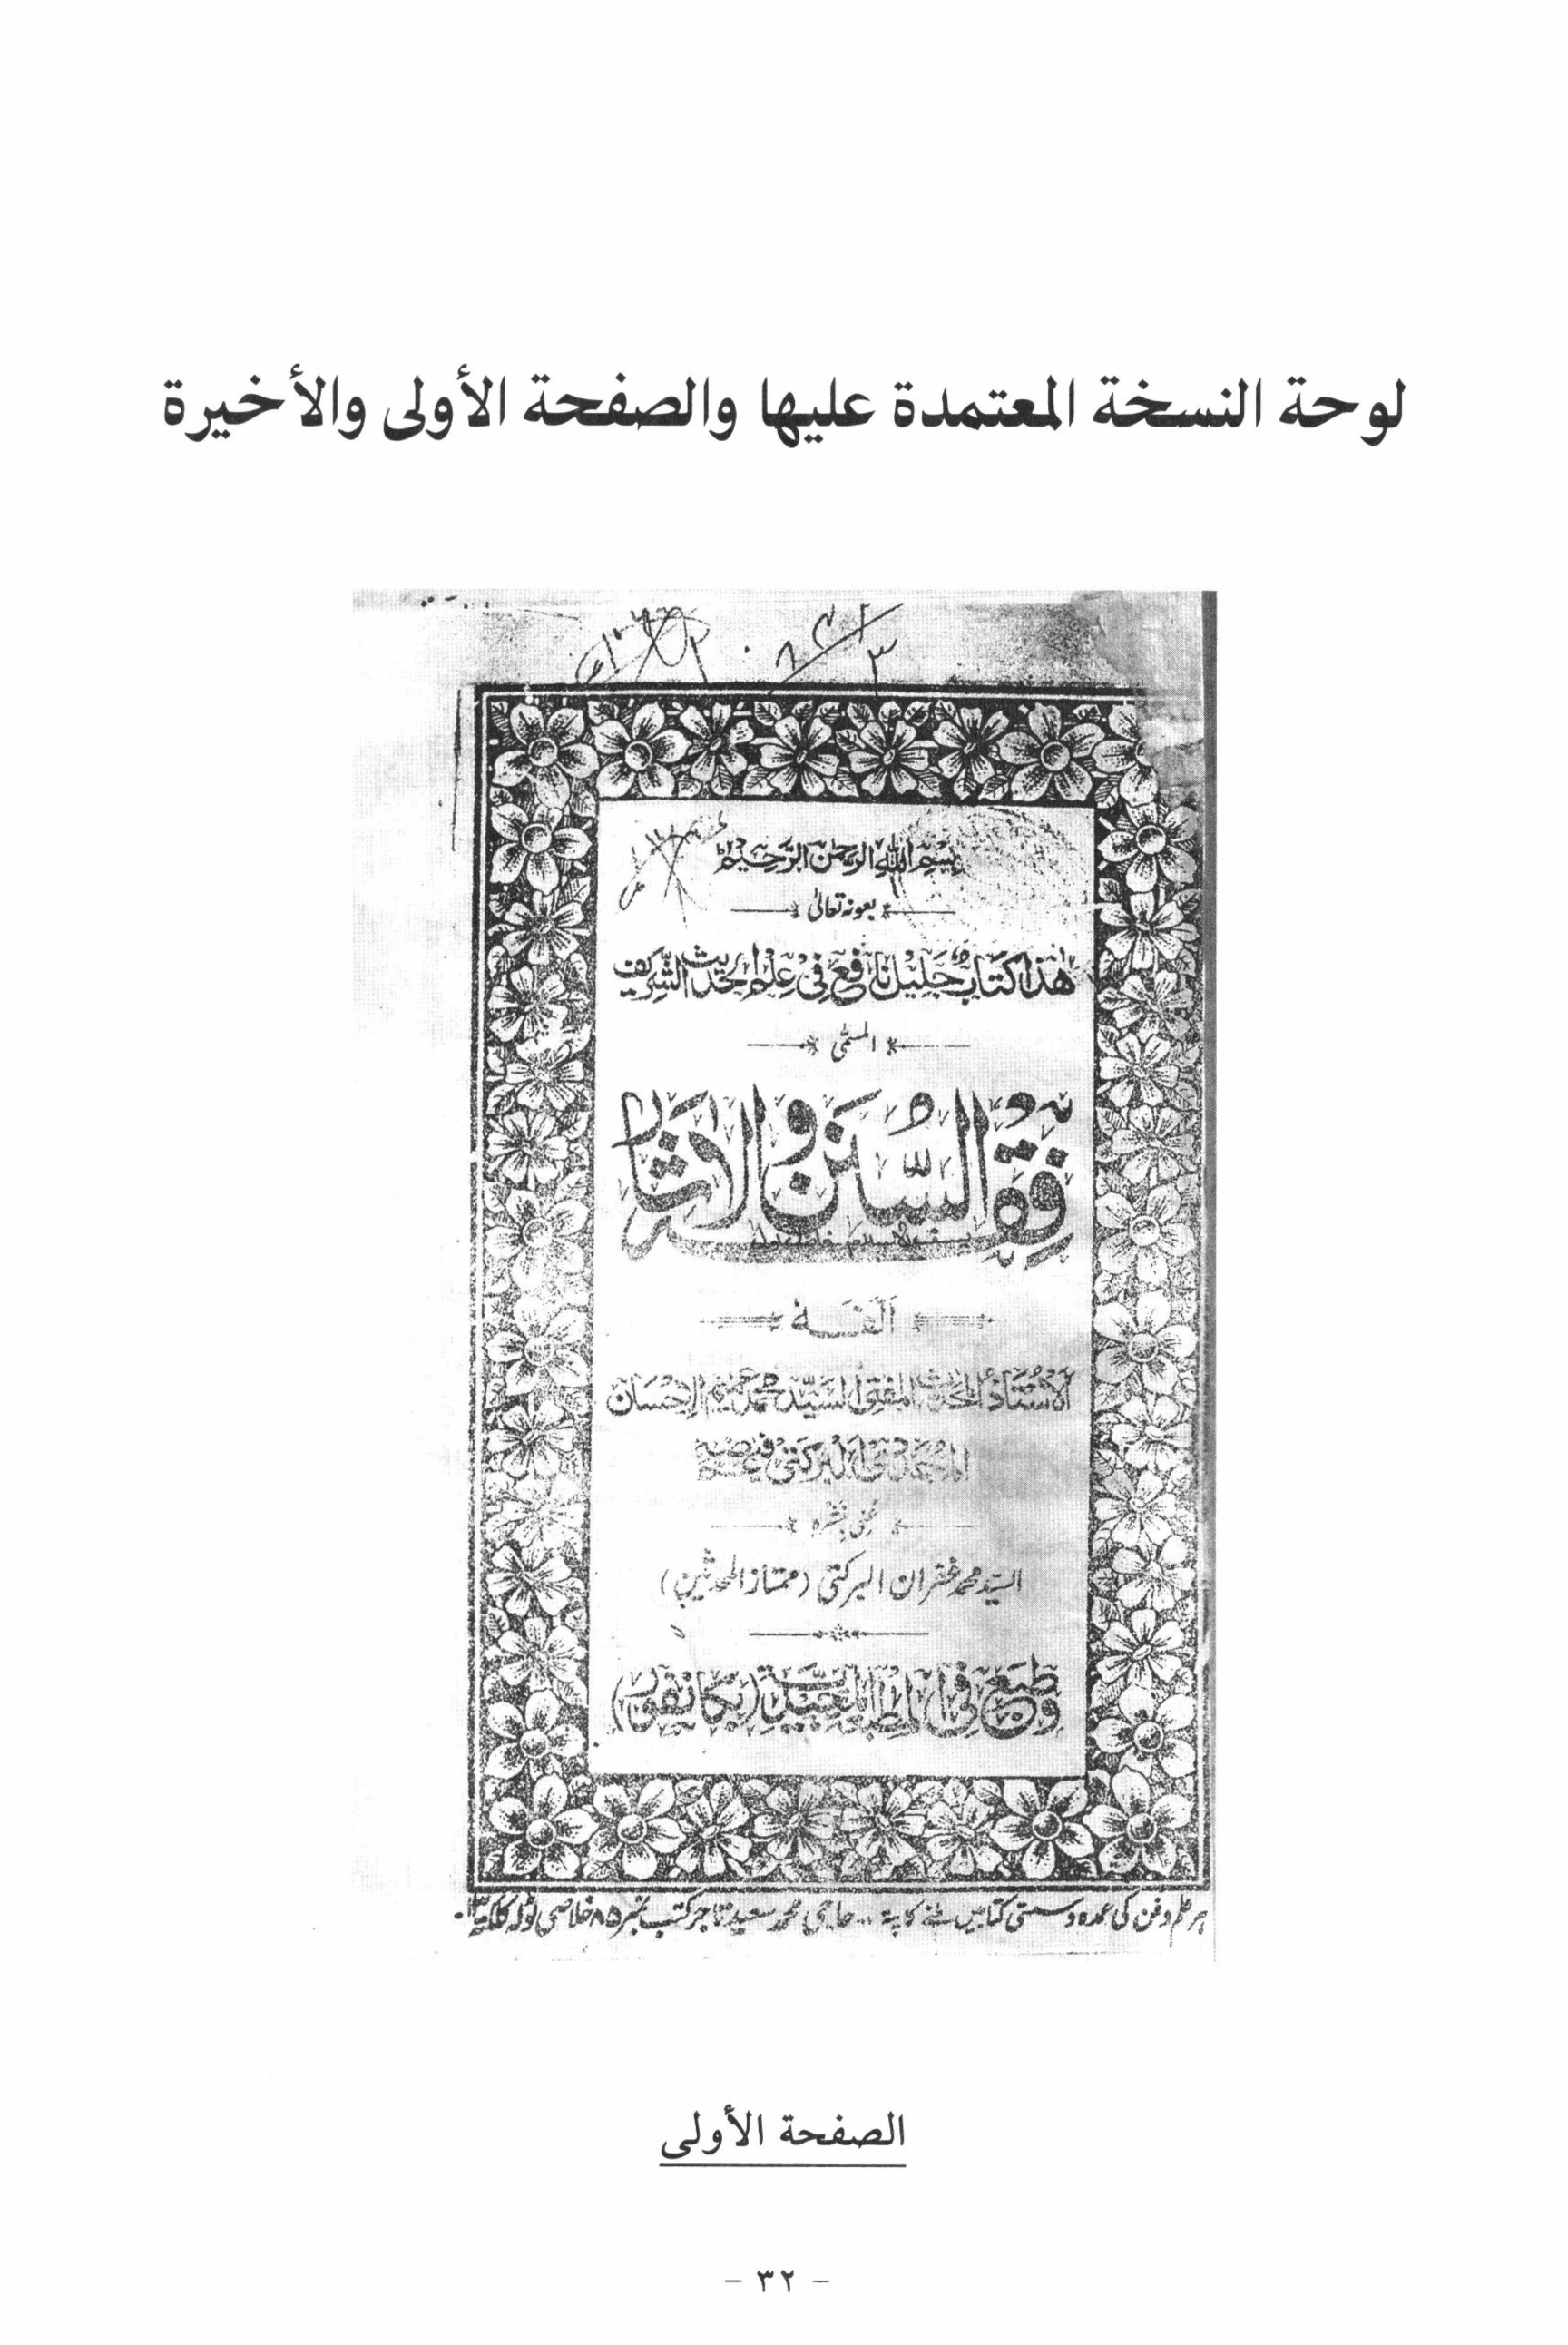 لوحة النسخة المعتمدة عليها والصفحة الأولى والأخيرة
بسم الله الرحمن الرحيم
بعونه تعالىٰ
هٰذا كتاب جليل نافع في علم الحديث الشريف
المسمّٰى
فقه السنن والآثار
ألفه
الأستاذ المحدث المفتي السيد محمد عميم الإحسان
المجددي البركتي
عني بنشره
السيد محمد غفران البركتي (ممتاز المحدثين)
وطبع في المطبعة المجيدية (بكانفور)
ہر علم وفن کی عمدہ وسستی کتابیں ملنے کا پتہ .. حاجی محمد سعید تاجر کتب نمبر ۸۵ خلاصی ٹولہ کلکتہ
الصفحة الأولى
- ٣٢ -